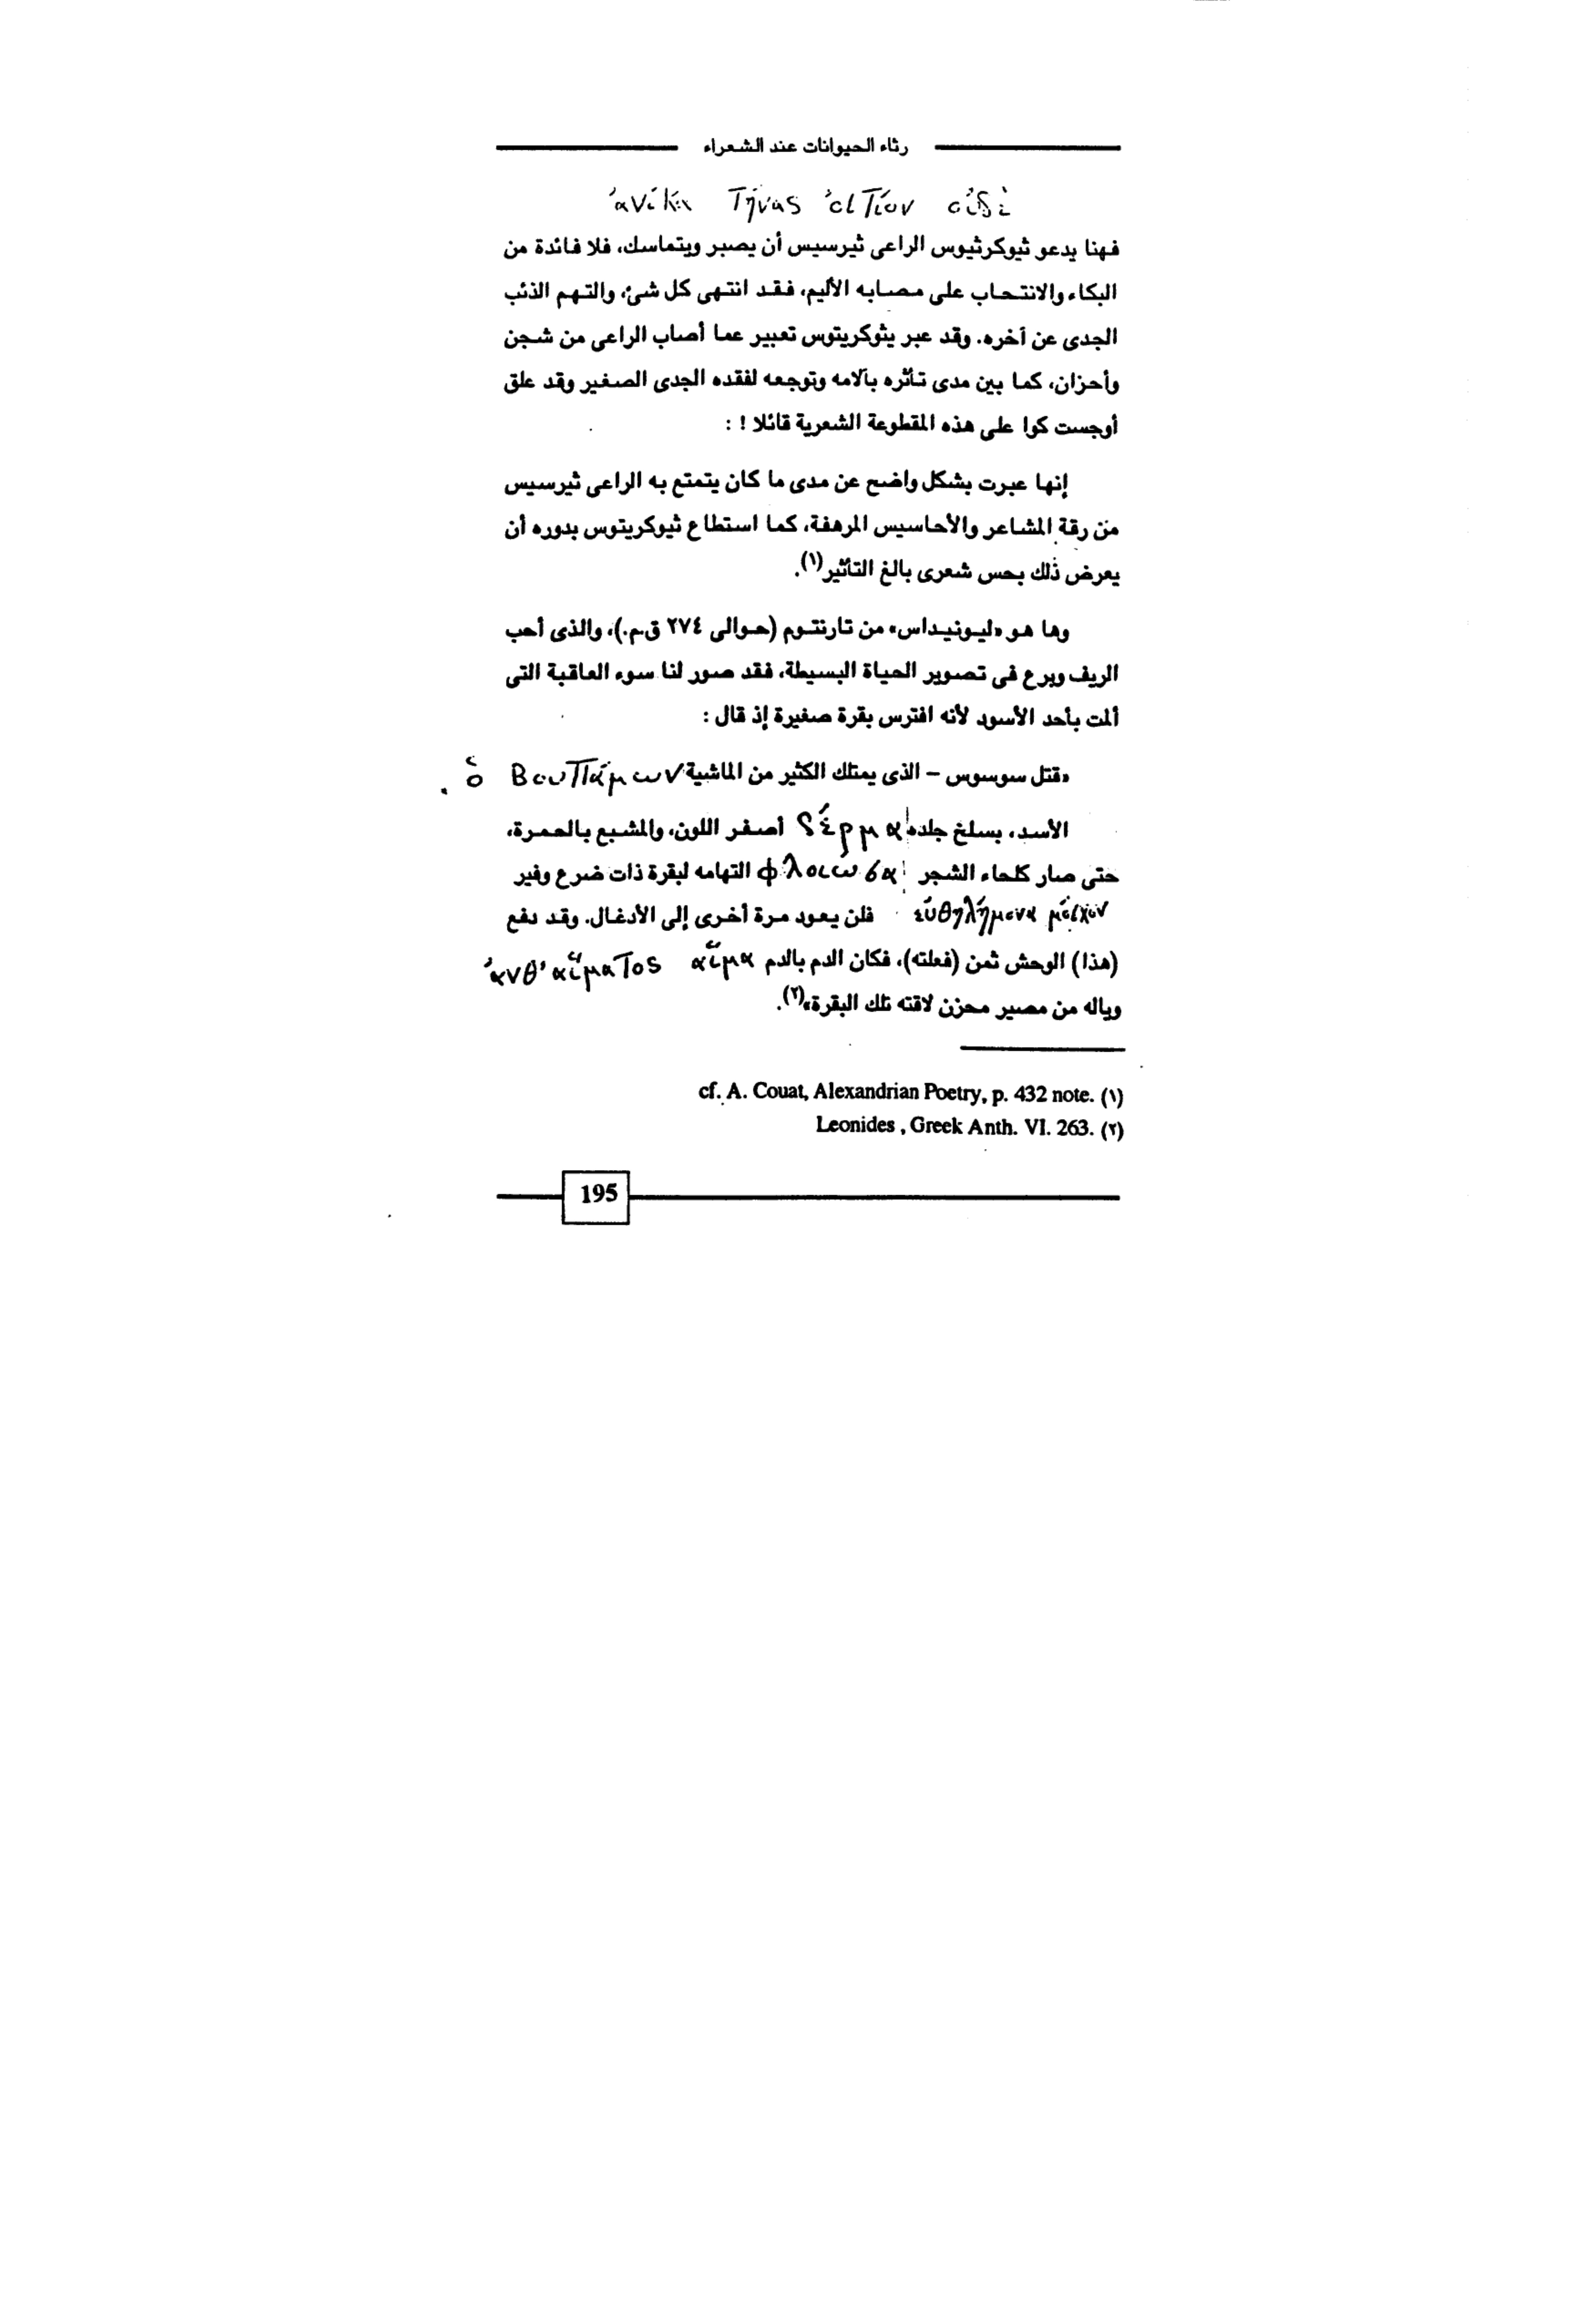 رثاء الحيوانات عند الشعراء
فهنا يدعو ثيوكرثيوس الراعى ثيرسيس أن يصبر ويتماسك، فلا فائدة من
البكاء والانتحاب على مصابه الأليم، فقد انتهى كل شئ، والتهم الذئب
الجدى عن آخره. وقد عبر يثوكريتوس تعبير عما أصاب الراعى من شجن
وأحزان، كما بين مدى تأثره بآلامه وتوجعه لفقده الجدى الصغير وقد علق
أوجست كوا على هذه المقطوعة الشعرية قائلا ! :
إنها عبرت بشكل واضح عن مدى ما كان يتمتع به الراعى ثيرسيس
من رقة المشاعر والأحاسيس المرهفة، كما استطاع ثيوكريتوس بدوره أن
يعرض ذلك بحس شعرى بالغ التأثير(١).
وها هو «ليونيداس» من تارنتوم (حوالى ٢٧٤ ق.م.)، والذى أحب
الريف وبرع فى تصوير الحياة البسيطة، فقد صور لنا سوء العاقبة التى
ألمت بأحد الأسود لأنه افترس بقرة صغيرة إذ قال :
«قتل سوسوس – الذى يمتلك الكثير من الماشية ὁ Βουπάμων
الأسد، بسلخ جلده δέρμα أصفر اللون، والمشبع بالحمرة،
حتى صار كلحاء الشجر φλοιώσα التهامه لبقرة ذات ضرع وفير
εὐθηλήμονα μόσχον فلن يعود مرة أخرى إلى الأدغال. وقد دفع
(هذا) الوحش ثمن (فعلته)، فكان الدم بالدم αἷμα ἀνθ' αἵματος
وياله من مصير محزن لاقته تلك البقرة»(٢).
(١) cf. A. Couat, Alexandrian Poetry, p. 432 note.
(٢) Leonides , Greek Anth. VI. 263.
195